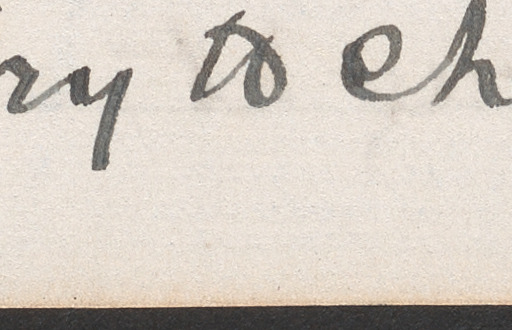 ry to ch